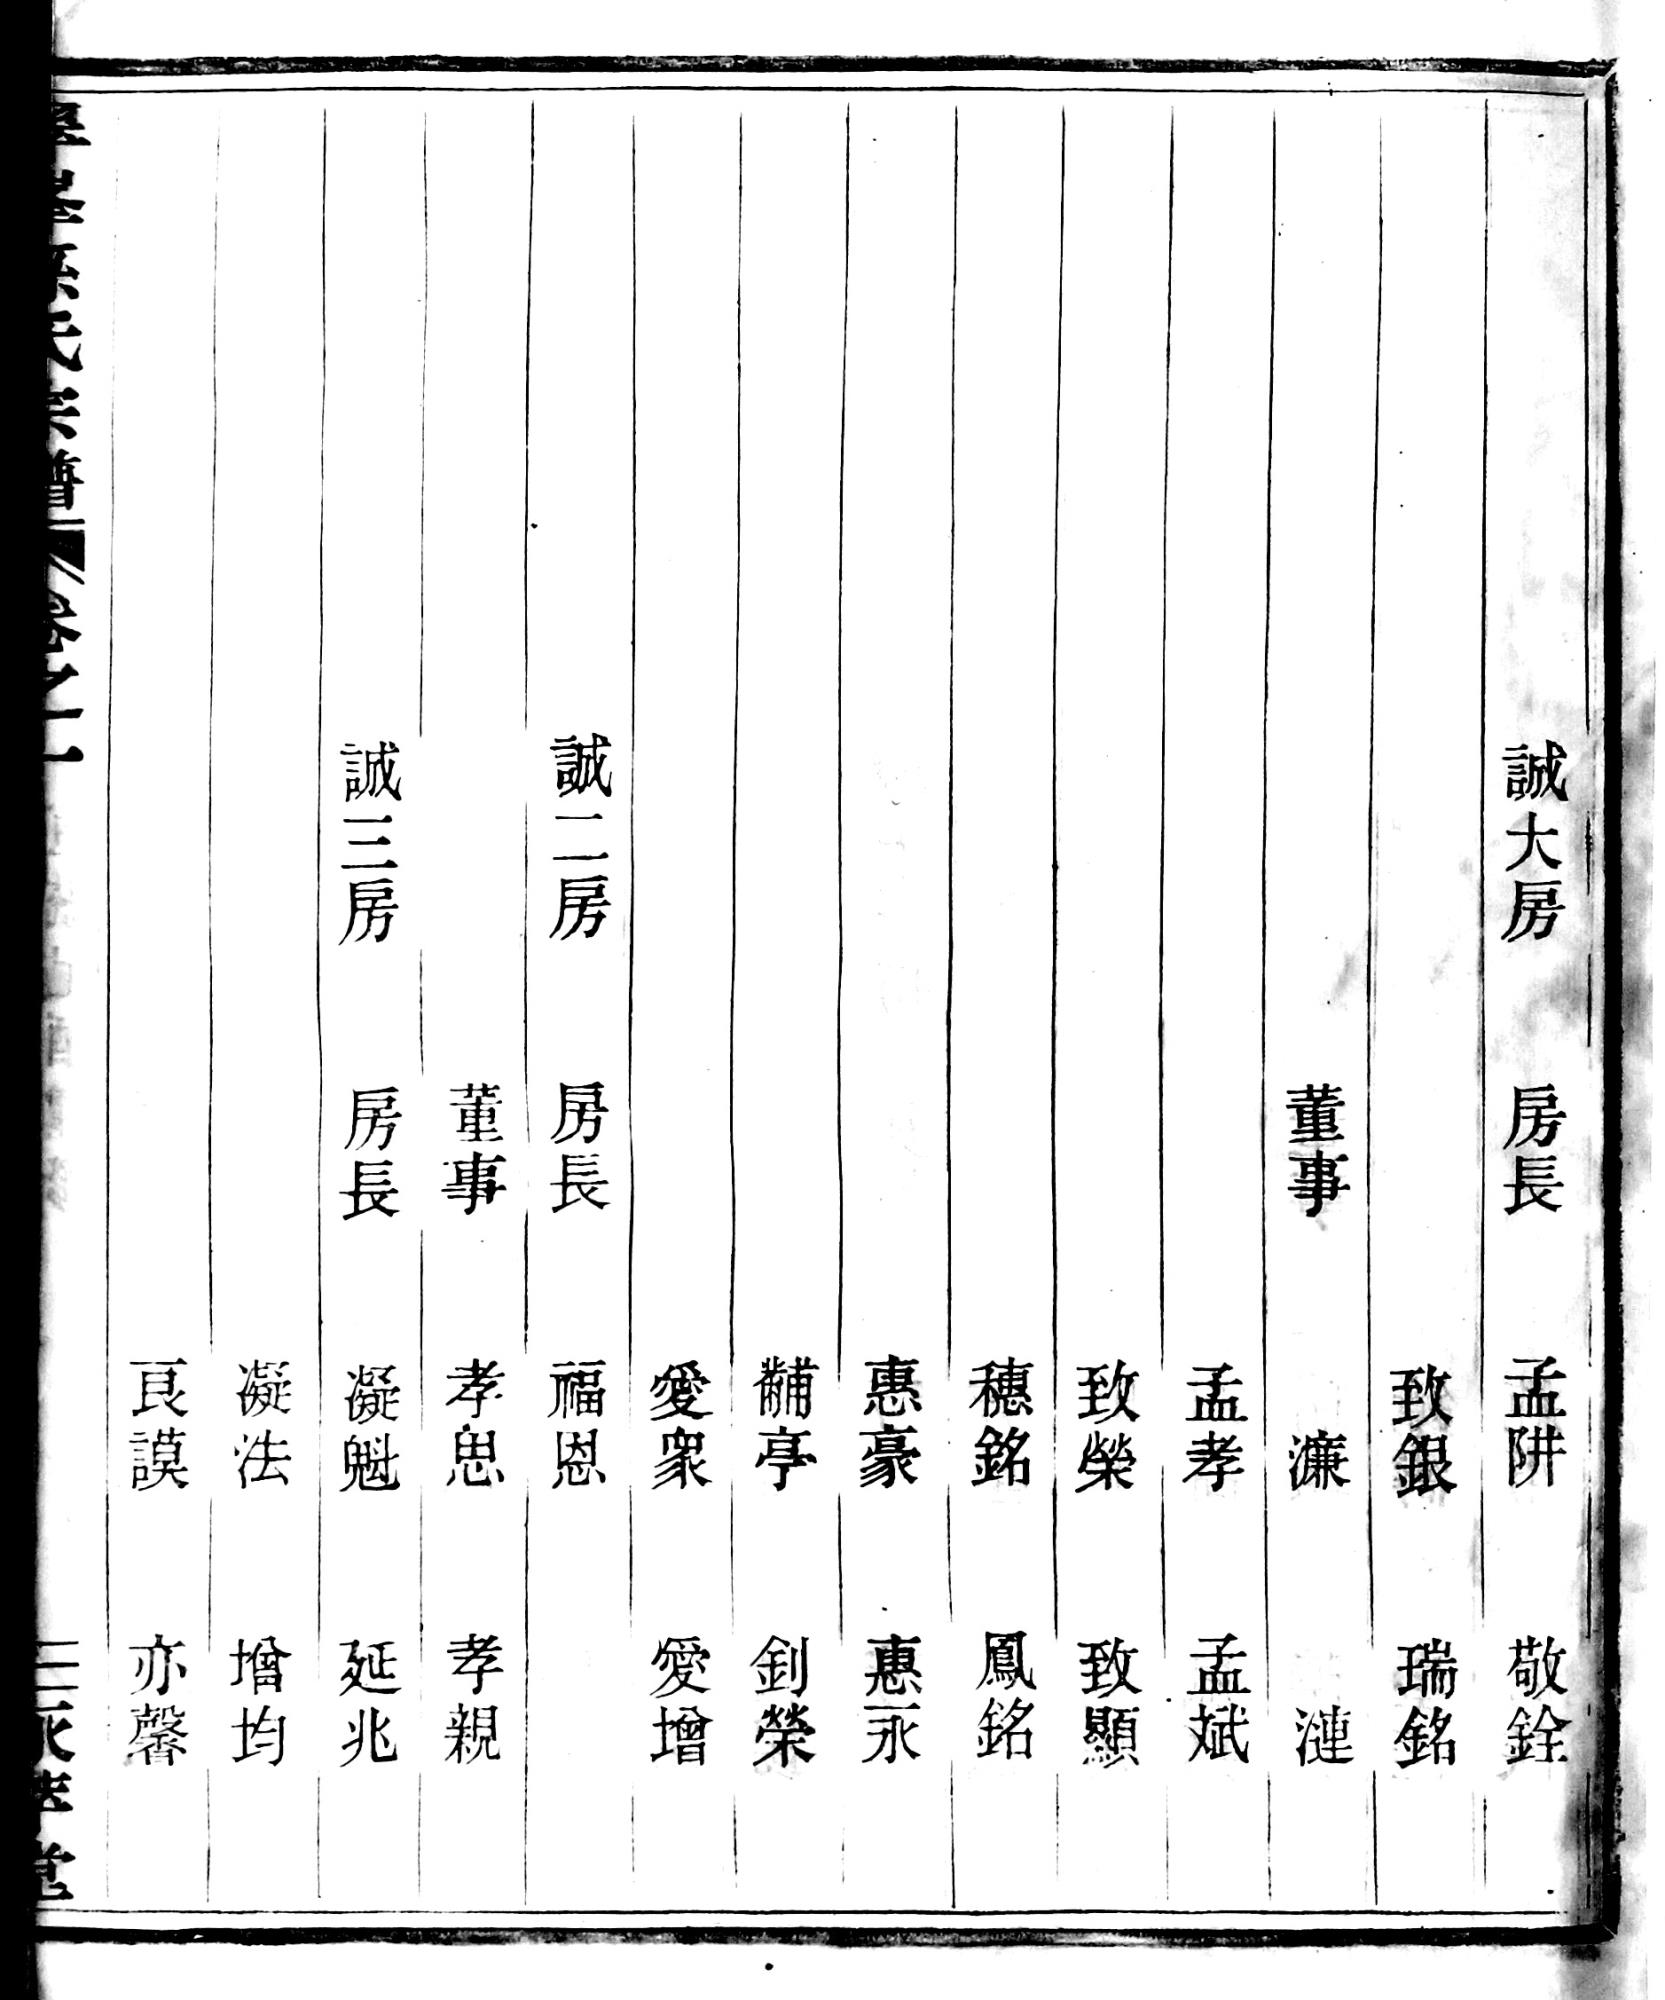 誠大房 房長 孟阱 敬銓
致銀 瑞銘
董事 濂 漣
孟孝 孟斌
致榮 致顯
穗銘 鳳銘
惠豪 惠永
黼亭 釗榮
愛衆 愛增
誠二房 房長 福恩
董事 孝思 孝親
誠三房 房長 凝魁 延兆
凝法 增均
良謨 亦馨
氏宗譜 卷之一 二 堂